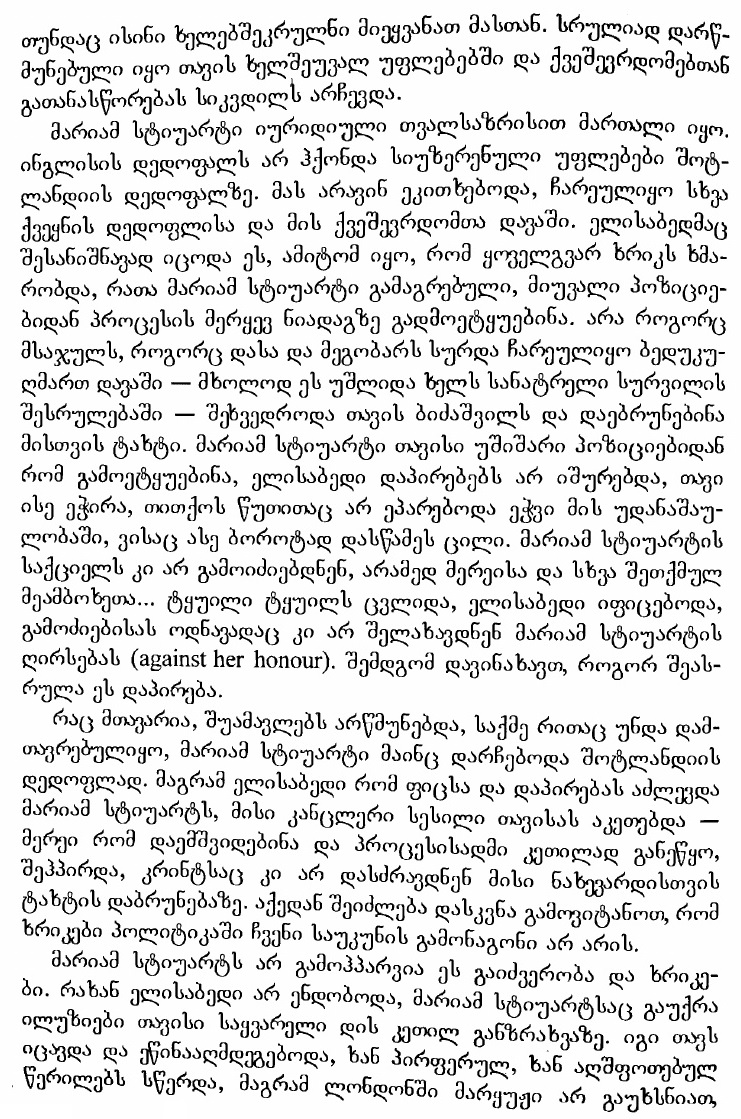 თუნდაც ისინი ხელებშეკრულნი მიეყვანათ მასთან. სრულიად დარწ-
მუნებული იყო თავის ხელშეუვალ უფლებებში და ქვეშევრდომებთან
გათანასწორებას სიკვდილს არჩევდა.
მარიამ სტიუარტი იურიდიული თვალსაზრისით მართალი იყო.
ინგლისის დედოფალს არ ჰქონდა სიუზერენული უფლებები შოტ-
ლანდიის დედოფალზე. მას არავინ ეკითხებოდა, ჩარეულიყო სხვა
ქვეყნის დედოფლისა და მის ქვეშევრდომთა დავაში. ელისაბედმაც
შესანიშნავად იცოდა ეს, ამიტომ იყო, რომ ყოველგვარ ხრიკს ხმა-
რობდა, რათა მარიამ სტიუარტი გამაგრებული, მიუვალი პოზიციე-
ბიდან პროცესის მერყევ ნიადაგზე გადმოეტყუებინა. არა როგორც
მსაჯულს, როგორც დასა და მეგობარს სურდა ჩარეულიყო ბედუკუ-
ღმართ დავაში — მხოლოდ ეს უშლიდა ხელს სანატრელი სურვილის
შესრულებაში — შეხვედროდა თავის ბიძაშვილს და დაებრუნებინა
მისთვის ტახტი. მარიამ სტიუარტი თავისი უშიშარი პოზიციებიდან
რომ გამოეტყუებინა, ელისაბედი დაპირებებს არ იშურებდა, თავი
ისე ეჭირა, თითქოს წუთითაც არ ეპარებოდა ეჭვი მის უდანაშაუ-
ლობაში, ვისაც ასე ბოროტად დასწამეს ცილი. მარიამ სტიუარტის
საქციელს კი არ გამოიძიებდნენ, არამედ მერეისა და სხვა შეთქმულ
მეამბოხეთა... ტყუილი ტყუილს ცვლიდა, ელისაბედი იფიცებოდა,
გამოძიებისას ოდნავადაც კი არ შელახავდნენ მარიამ სტიუარტის
ღირსებას (against her honour). შემდგომ დავინახავთ, როგორ შეას-
რულა ეს დაპირება.
რაც მთავარია, შუამავლებს არწმუნებდა, საქმე რითაც უნდა დამ-
თავრებულიყო, მარიამ სტიუარტი მაინც დარჩებოდა შოტლანდიის
დედოფლად. მაგრამ ელისაბედი რომ ფიცსა და დაპირებას აძლევდა
მარიამ სტიუარტს, მისი კანცლერი სესილი თავისას აკეთებდა —
მერეი რომ დაემშვიდებინა და პროცესისადმი კეთილად განეწყო,
შეჰპირდა, კრინტსაც კი არ დასძრავდნენ მისი ნახევარდისთვის
ტახტის დაბრუნებაზე. აქედან შეიძლება დასკვნა გამოვიტანოთ, რომ
ხრიკები პოლიტიკაში ჩვენი საუკუნის გამონაგონი არ არის.
მარიამ სტიუარტს არ გამოჰპარვია ეს გაიძვერობა და ხრიკე-
ბი. რახან ელისაბედი არ ენდობოდა, მარიამ სტიუარტსაც გაუქრა
ილუზიები თავისი საყვარელი დის კეთილ განზრახვაზე. იგი თავს
იცავდა და ეწინააღმდეგებოდა, ხან პირფერულ, ხან აღშფოთებულ
წერილებს სწერდა, მაგრამ ლონდონში მარყუჟი არ გაუხსნიათ,